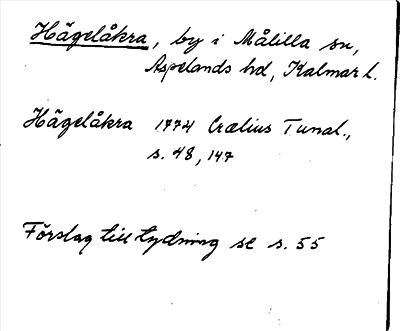 Hägelåkra, by i Målilla sn,
Aspelands hd, Kalmar l.
Hägelåkra 1774 Crælius Tunal.,
s. 48, 147
Förslag till tydning se s. 55